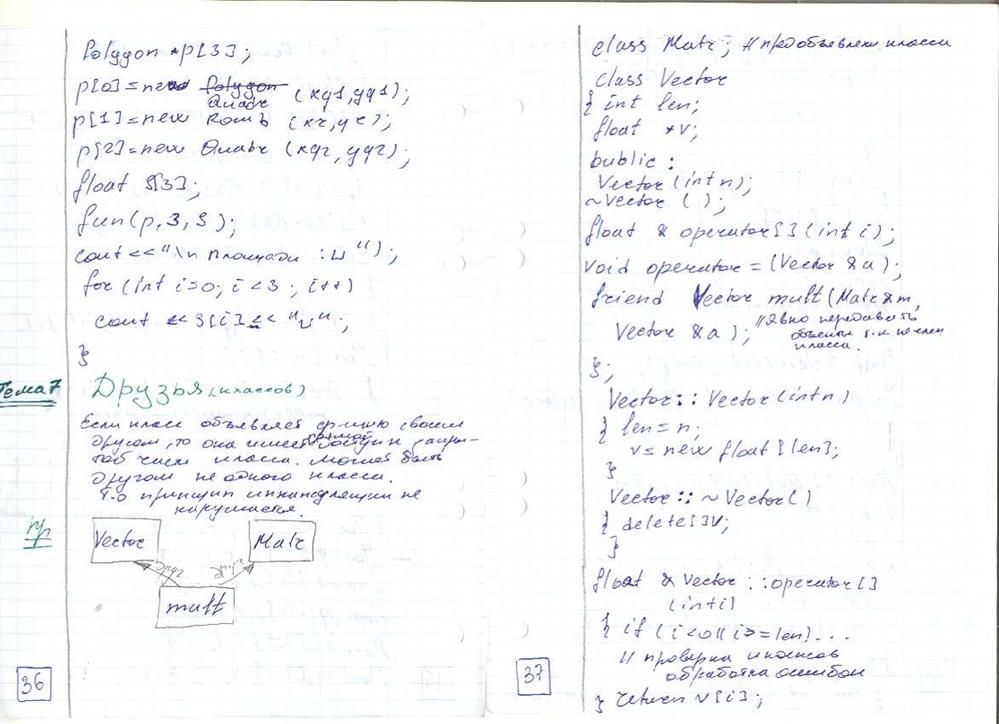 Polygon *p[3];
p[0]=new Polygon Quadr (xq1,yq1);
p[1]=new Romb (xr,yr);
p[2]=new Quadr (xq2,yq2);
float S[3];
fun(p,3,S);
cout<<"\n площади :⊔");
for(int i=0; i<3; i++)
cout <<S[i]<< "⊔";
}
Тема 7 Друзья (классов)
Если класс объявляет ф-цию своим
другом, то она имеет доступ к закры-
той части класса. Может быть
другом не одного класса.
Т.о принцип инкапсуляции не
нарушается.
пр
Vector Matr
друг друг
mult
36
class Matr; // предобъявлени класса
class Vector
{ int len;
float *v;
bublic:
Vector(int n);
~Vector ( );
float & operator[](int i);
void operator=(Vector &a);
friend Vector mult(Matr&m,
Vector &a); // Явно передавать
объекты т.к не член
класса.
};
Vector::Vector(int n)
{ len=n;
v=new float[len];
}
Vector::~Vector()
{ delete[]v;
}
float & Vector::operator[]
(int i)
{ if(i<0||i>=len)...
// проверка индексов
обработка ошибок
} return v[i];
37